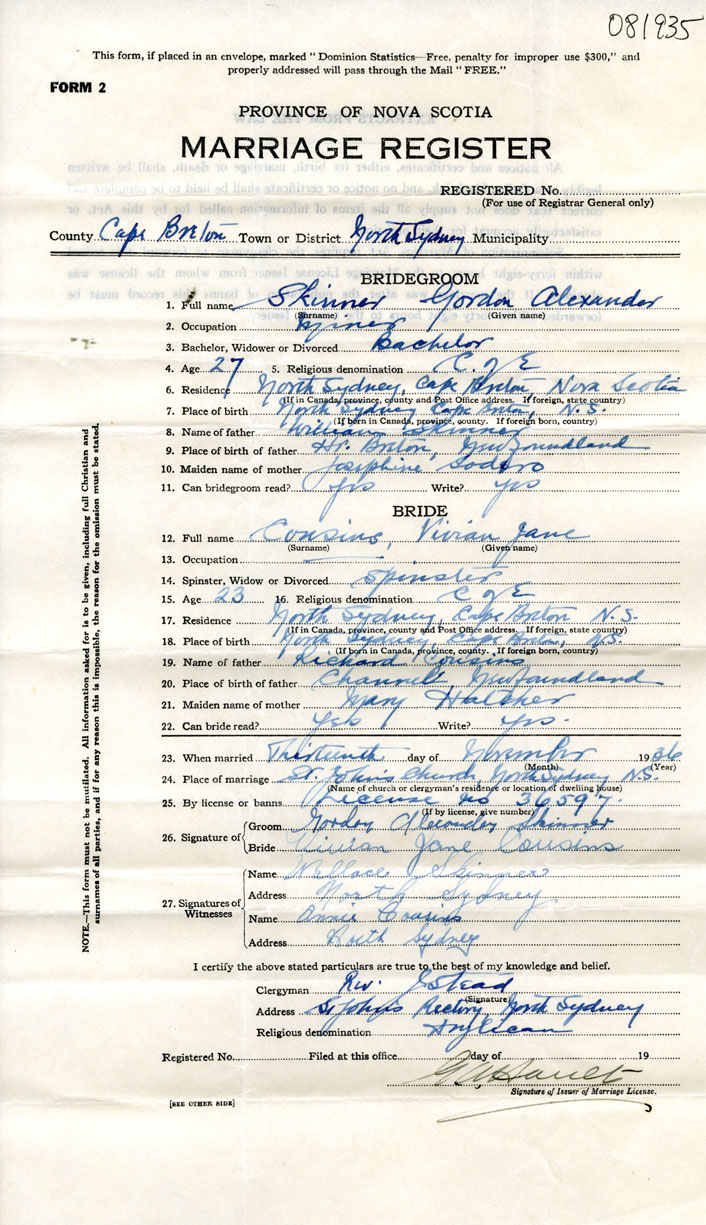 081935
This form, if placed in an envelope, marked "Dominion Statistics—Free, penalty for improper use $300," and
properly addressed will pass through the Mail "FREE."
FORM 2
PROVINCE OF NOVA SCOTIA
MARRIAGE REGISTER
REGISTERED No.
(For use of Registrar General only)
County Cape Breton Town or District North Sydney Municipality
BRIDEGROOM
1. Full name Skinner Gordon Alexander
(Surname) (Given name)
2. Occupation Miner
3. Bachelor, Widower or Divorced Bachelor
4. Age 27 5. Religious denomination C. of E
6. Residence North Sydney, Cape Breton, Nova Scotia
(If in Canada, province, county and Post Office address. If foreign, state country)
7. Place of birth North Sydney Cape Breton, N.S.
(If born in Canada, province, county. If foreign born, country)
8. Name of father William Skinner
9. Place of birth of father Hr. Breton, Newfoundland
10. Maiden name of mother Josephine
11. Can bridegroom read? yes Write? yes
BRIDE
12. Full name Cousins, Vivian Jane
(Surname) (Given name)
13. Occupation
14. Spinster, Widow or Divorced Spinster
15. Age 23 16. Religious denomination C of E
17. Residence North Sydney, Cape Breton N.S.
(If in Canada, province, county and Post Office address. If foreign, state country)
18. Place of birth North Sydney, Cape Breton, N.S.
(If born in Canada, province, county. If foreign born, country)
19. Name of father Richard Cousins
20. Place of birth of father Channel, Newfoundland
21. Maiden name of mother Mary Hatcher
22. Can bride read? Yes Write? Yes.
23. When married Thirteenth day of November 1936
(Month) (Year)
24. Place of marriage St. John's Church, North Sydney N.S.
(Name of church or clergyman's residence or location of dwelling house)
25. By license or banns License no 36597.
(If by license, give number)
26. Signature of Groom Gordon Alexander Skinner
Bride Vivian Jane Cousins
27. Signatures of Witnesses
Name Wallace Skinner
Address North Sydney
Name Annie Cousins
Address North Sydney
I certify the above stated particulars are true to the best of my knowledge and belief.
Clergyman Rev. Stead
(Signature)
Address St John's Rectory, North Sydney
Religious denomination Anglican
Registered No. Filed at this office day of 19
Signature of Issuer of Marriage License.
[SEE OTHER SIDE]
NOTE.—This form must not be mutilated. All information asked for is to be given, including full Christian and
surnames of all parties, and if for any reason this is impossible, the reason for the omission must be stated.